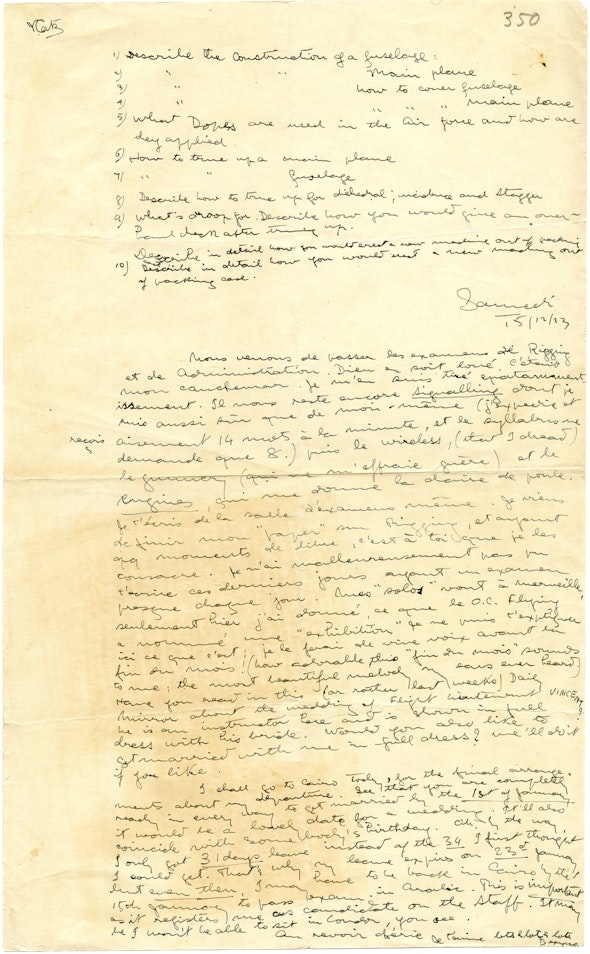 350
1) Describe the Construction of a fuselage:
2) " " Main plane
3) " how to cover fuselage
4) " " " " main plane
5) What Dopes are used in the Air Force and how are
they applied
6) How to true up a main plane
7) " " fuselage
8) Describe how to true up for dihedral; incidence and Stagger
9) What is droop for. Describe how you would give an over-
haul check after truing up.
Describe in detail how you would erect a new machine out of packing
10) Describe in detail how you would erect a new machine out
of packing case.
Samedi
15/12/23
Nous venons de passer les examens de Rigging
et de Administration. Dieu en soit loué. C'était
mon cauchemar. Je m'en suis tiré épatamment
. Il nous reste encore Signalling dont je
suis aussi sûr que de moi-même (J'expédie et
reçois
aisément 14 mots à la minute, et le syllabus ne
demande que 8.) puis le wireless, (that I dread)
le gunnery (qui ne m'effraie guère) et le
Engines, qui me donne la chaire de poule.
Je t'écris de la salle d'examens même. Je viens
de finir mon "paper" sur Rigging, et ayant
qq moments de libre, c'est à toi que je les
consacre. Je n'ai malheureusement pas pu
t'écrire ces derniers jours ayant un examen
presque chaque jour. Mes "solos" vont à merveille,
seulement hier j'ai donné, ce que le O.C. Flying
a nommé une "exhibition". Je ne puis t'expliquer
ici ce que c'est; je le ferai de vive voix avant la
fin du mois! (how adorable this "fin du mois" sounds
to me; the most beautiful melody my ears ever heard)
Have you read in this (or rather last) week's Daily
Mirror about the wedding of Flight Lieutenant VINCENT?
he is an instructor here and is shown in full
dress with his bride. Would you also like to
get married with me in full dress? we'll do it
if you like.
I shall go to Cairo today, for the final arrange-
ments about my departure. See that you are completely
ready in every way to get married by the 1st of January,
it would be a lovely date for a wedding. It'll also
coincide with somebody's birthday. Oh, by the way,
I only got 31 days leave instead of the 34 I first thought
I could get. That's why my leave expires on 23rd January
but even then, I may have to be back in Cairo by the
15th January to pass exam in Arabic. This is important
as it registers me as candidate on the Staff. It may
be I won't be able to sit in London, you see.
Au revoir chérie je t'aime lots & lots & lots